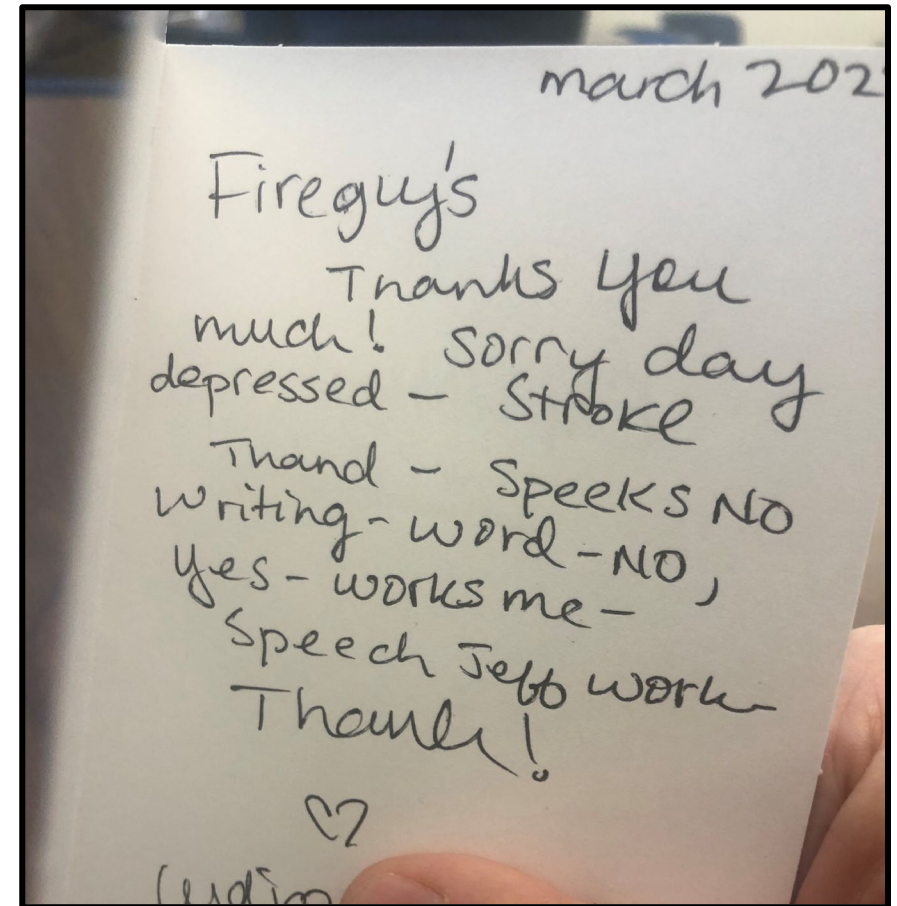 march 202
Fireguy's
Thanks you
much! sorry day
depressed - Stroke
Thand - Speeks NO
Writing - word - NO,
Yes - works me -
Speech Jeff work
Thank!
♡